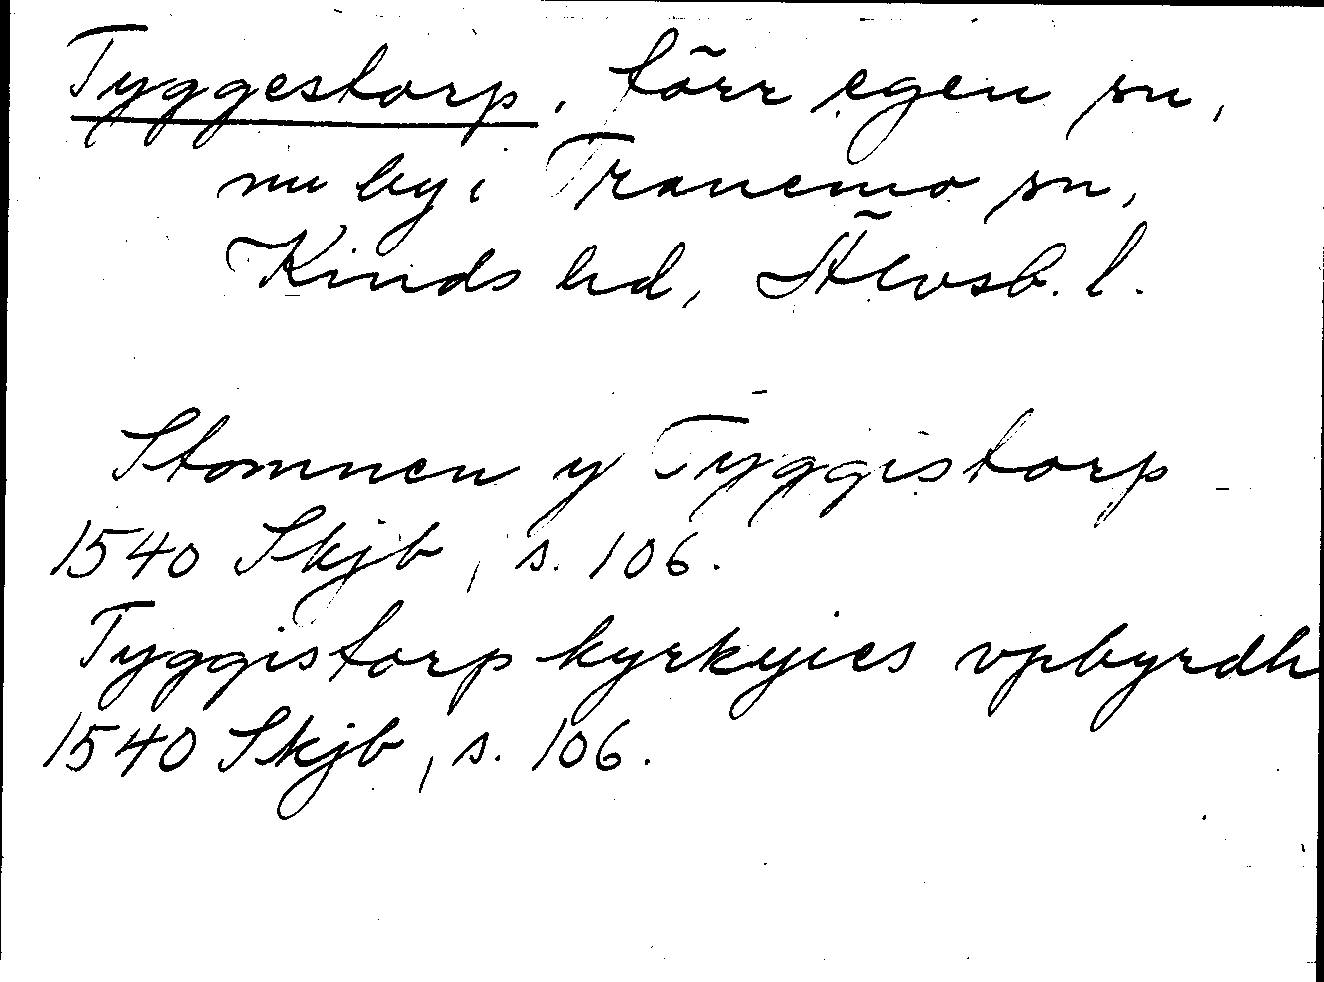 Tyggestorp, förr egen sn,
nu by i Tranemo sn,
Kinds hd, Älvsb. l.
Stomnen y Tyggistorp
1540 Skjb, s. 106.
Tyggistorp kyrkyies vpbyrdh
1540 Skjb, s. 106.